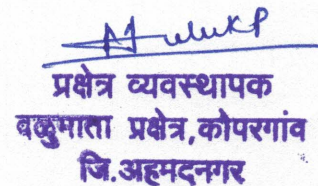 प्रक्षेत्र व्यवस्थापक
वळुमाता प्रक्षेत्र,कोपरगांव
जि.अहमदनगर